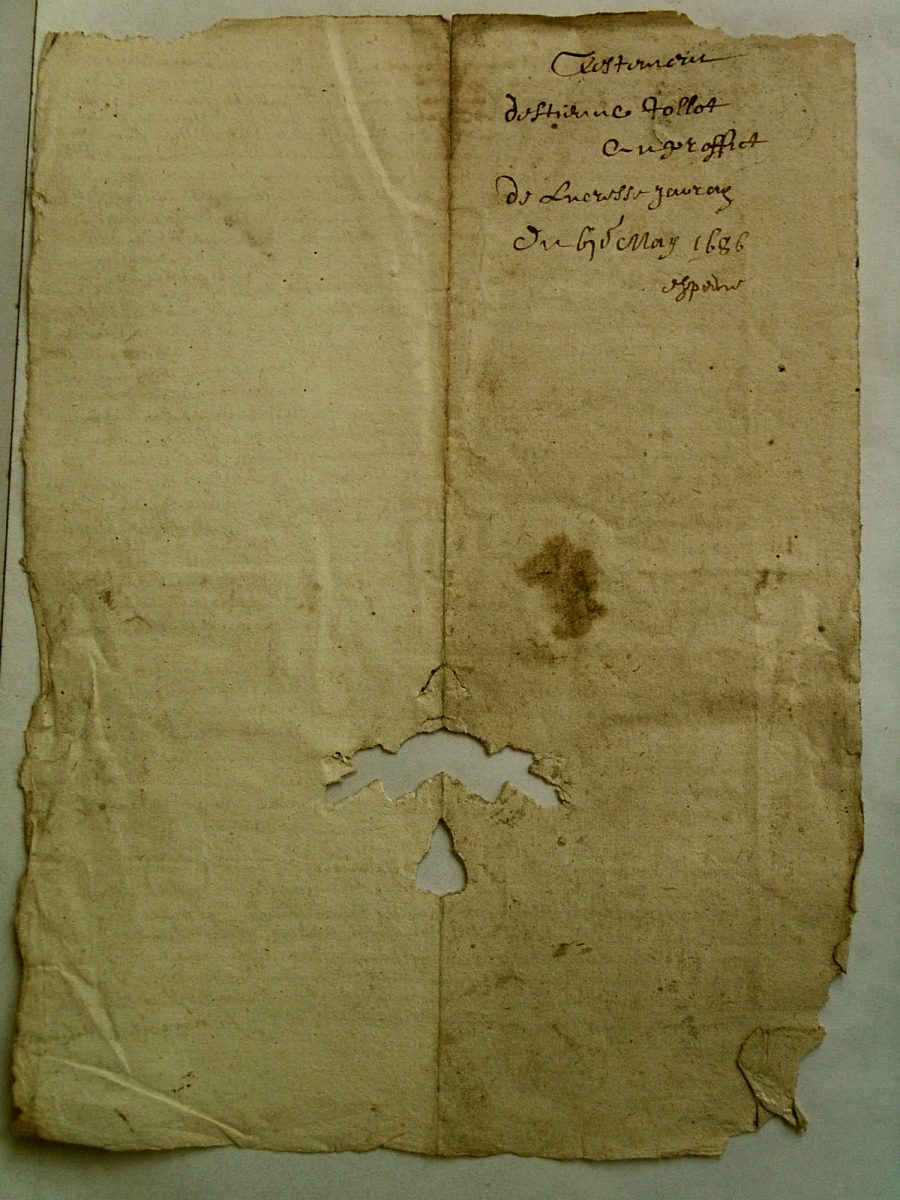 Testement
destienne Tollot
En proffict
de Lucresse Javray
Du May 1686